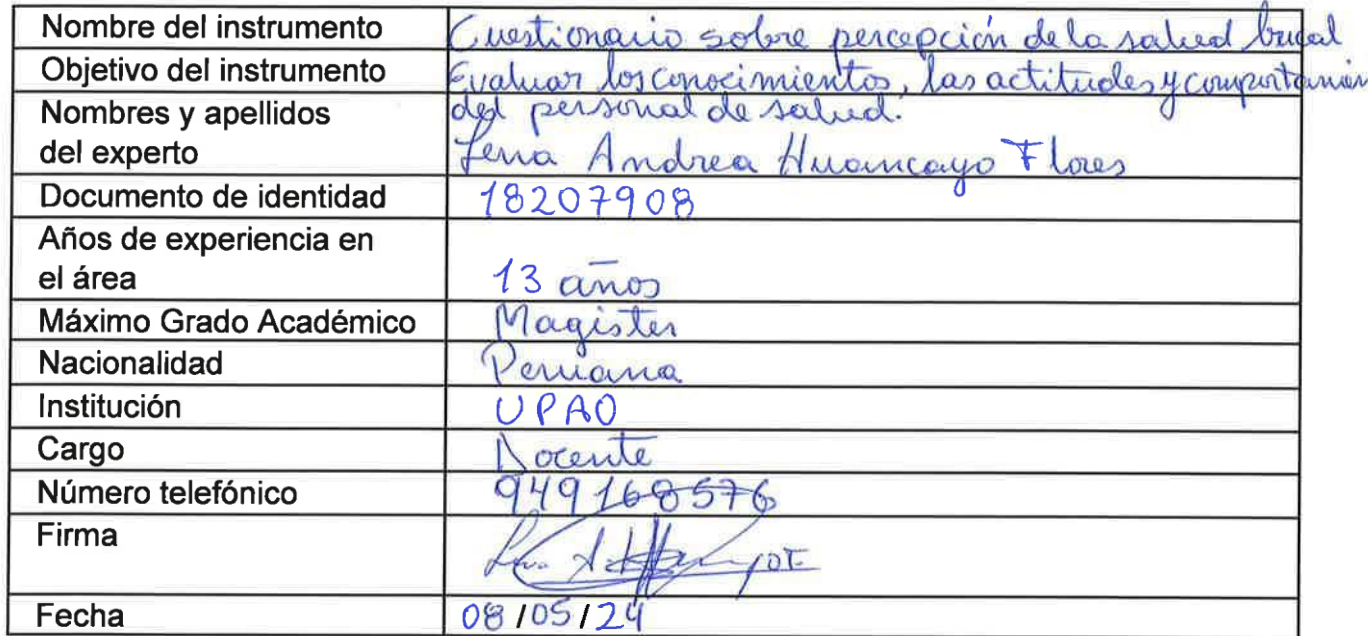 Nombre del instrumento Cuestionario sobre percepción de la salud bucal
Objetivo del instrumento Evaluar los conocimientos, las actitudes y comportamien
Nombres y apellidos del personal de salud.
del experto Lena Andrea Huancayo Flores
Documento de identidad 18207908
Años de experiencia en
el área 13 años
Máximo Grado Académico Magister
Nacionalidad Peruana
Institución UPAO
Cargo Docente
Número telefónico 949168576
Firma
Fecha 08/05/24